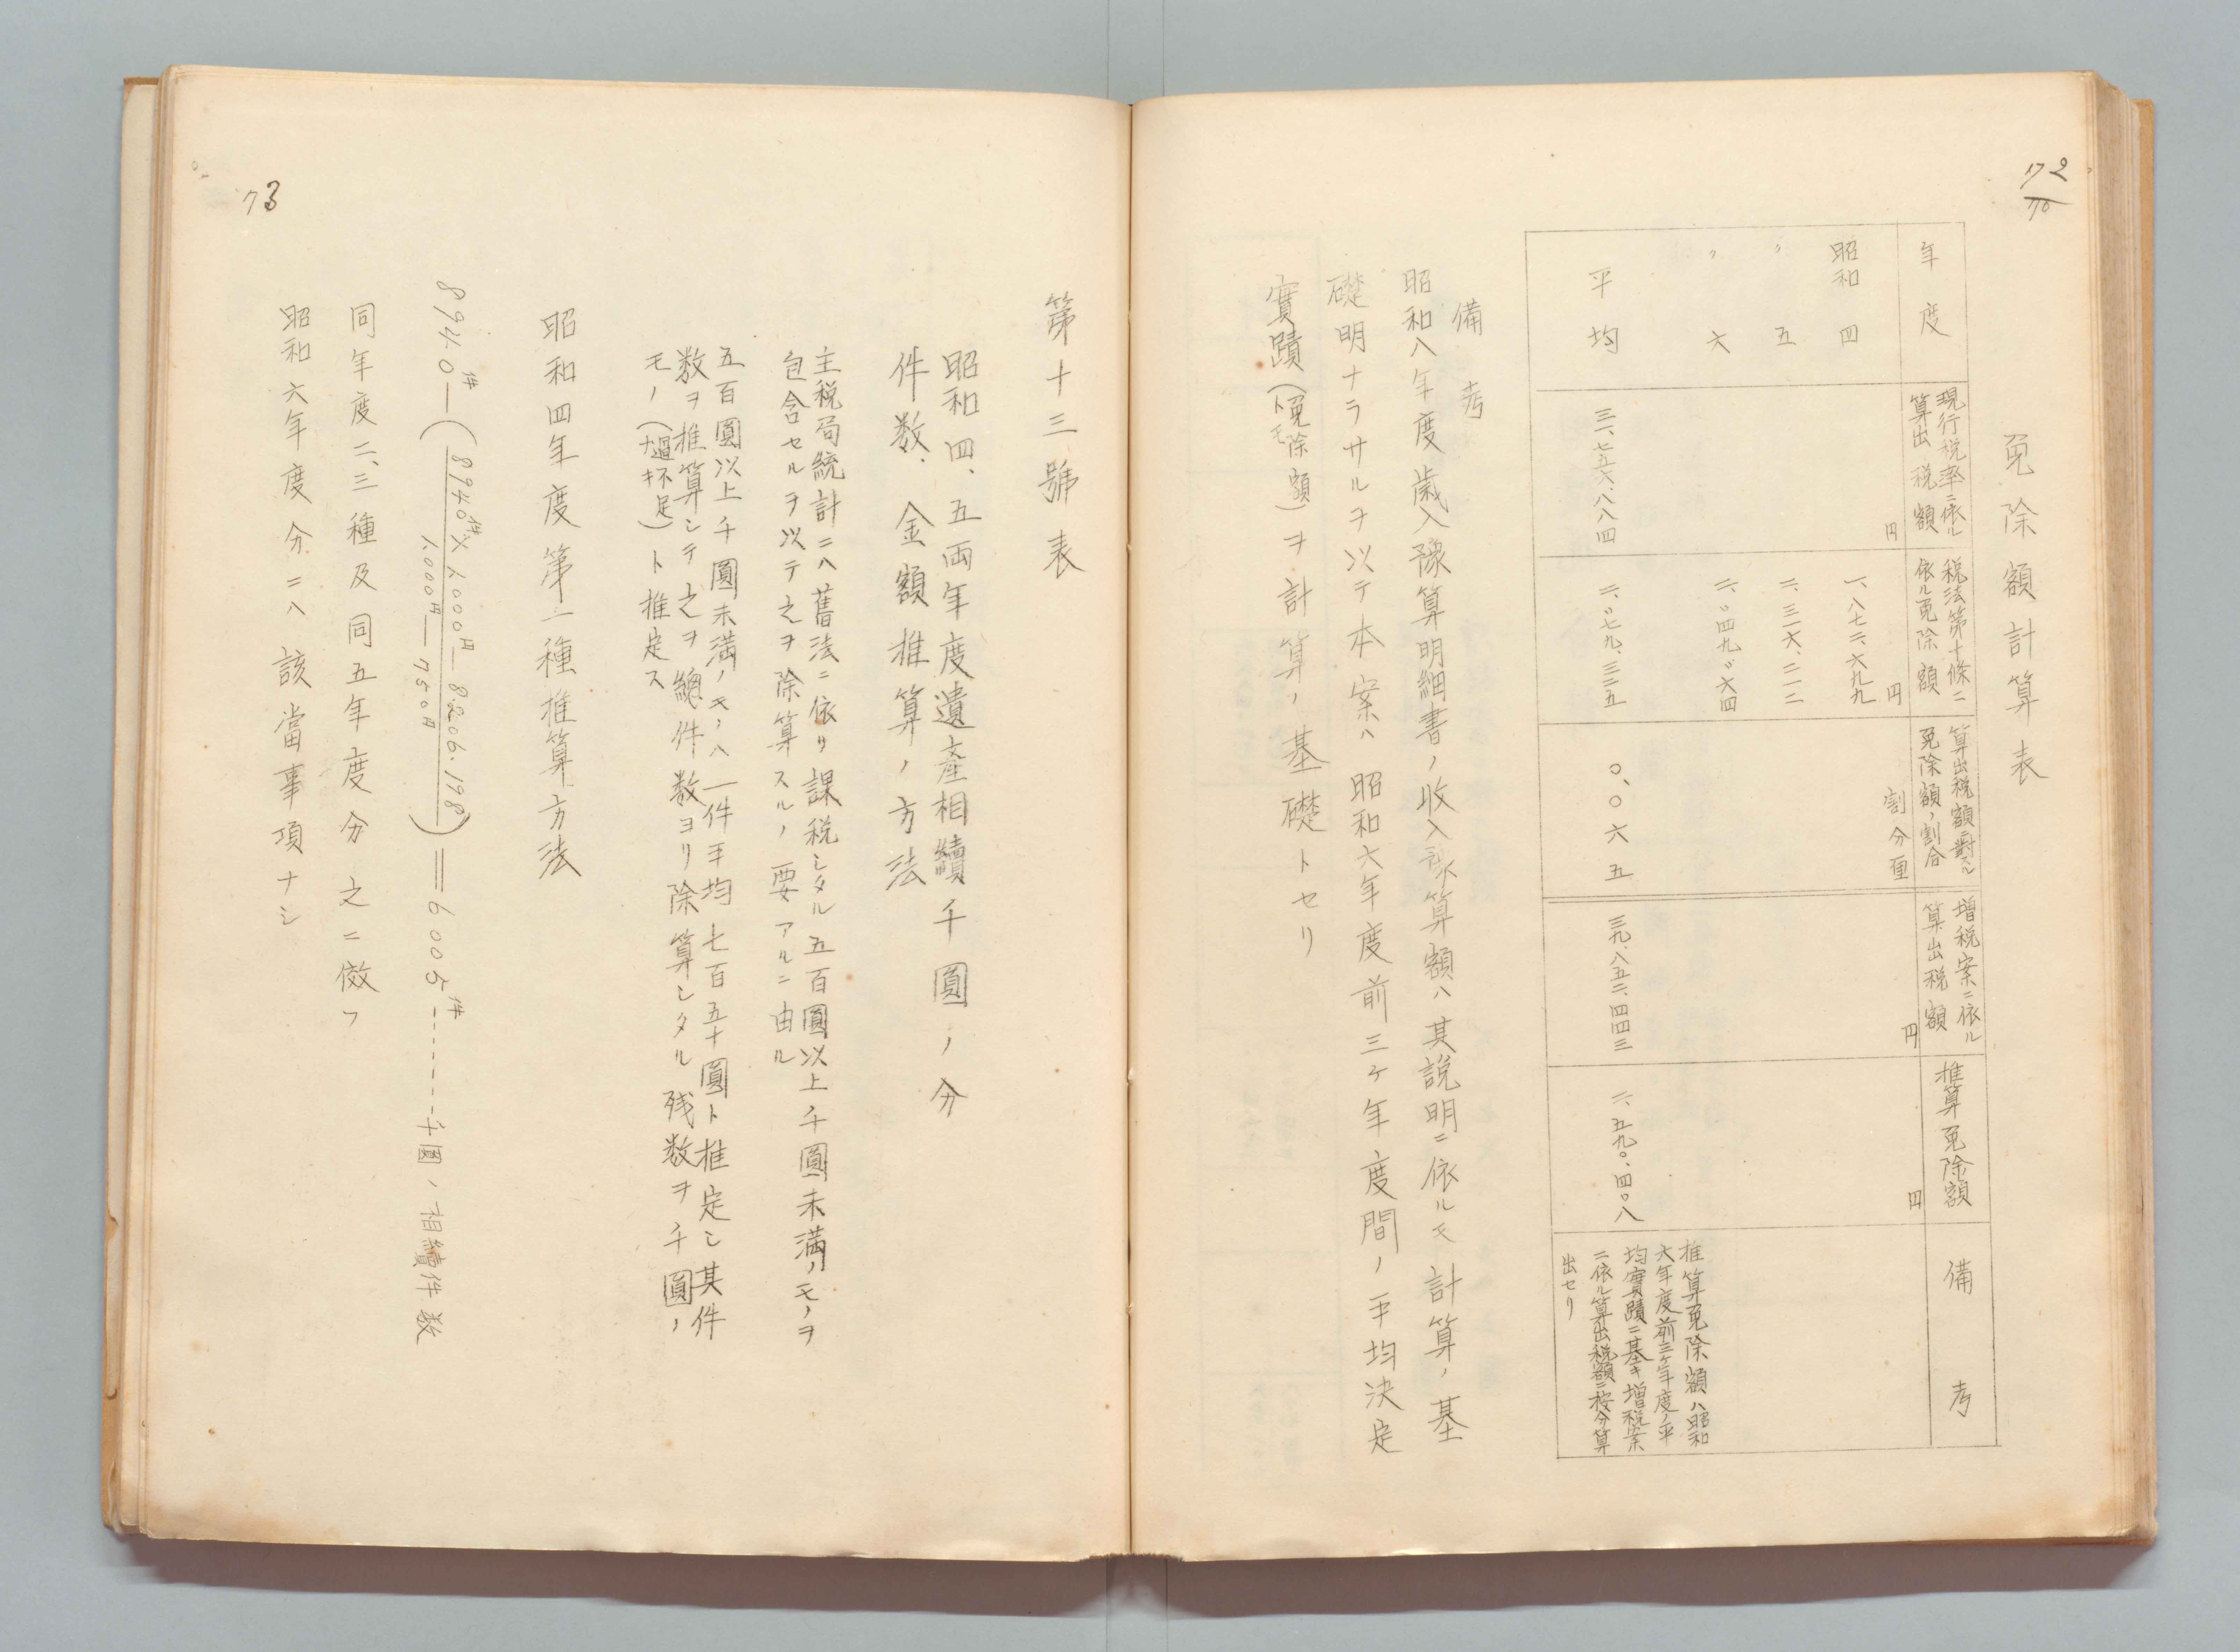 72
70
免除額計算表
年度
現行税率ニ依ル
算出税額
税法第十條ニ
依ル免除額
算出税額ニ對スル
免除額ノ割合
増税案ニ依ル
算出税額
推算免除額
備考
円
円
割分厘
円
円
昭和四
一、八七二、六九九
〃五
二、三一六、二一二
〃六
二、〇四九、〇六四
平均
二、〇七九、三二五
〇、〇六五
三九、八五二、四四三
二、五九〇、四〇八
推算免除額ハ昭和
六年度前三ケ年度ノ平
均實蹟ニ基キ増税案
ニ依ル算出税額ニ按分算
出セリ
備考
昭和八年度歳入豫算明細書ノ收入豫算額ハ其説明ニ依ルモ計算ノ基
礎明ナラサルヲ以テ本案ハ昭和六年度前三ケ年度間ノ平均決定
實蹟(免除額トモ)ヲ計算ノ基礎トセリ
73
第十三號表
昭和四、五両年度遺產相續千圓ノ分
件数、金額推算ノ方法
主税局統計ニハ舊法ニ依リ課税シタル五百圓以上千圓未満ノモノヲ
包含セルヲ以テ之ヲ除算スルノ要アルニ由ル
五百圓以上千圓未満ノモノハ一件平均七百五十圓ト推定シ其件
数ヲ推算シテ之ヲ總件数ヨリ除算シタル残数ヲ千圓ノ
モノ(過不足ナキ)ト推定ス
昭和四年度第一種推算方法
8940件—(8940件×1,000円—8206.198/1,000円—750円)=6005件-------千圓ノ相續件数
同年度二、三種及同五年度分之ニ倣フ
昭和六年度分ニハ該當事項ナシ